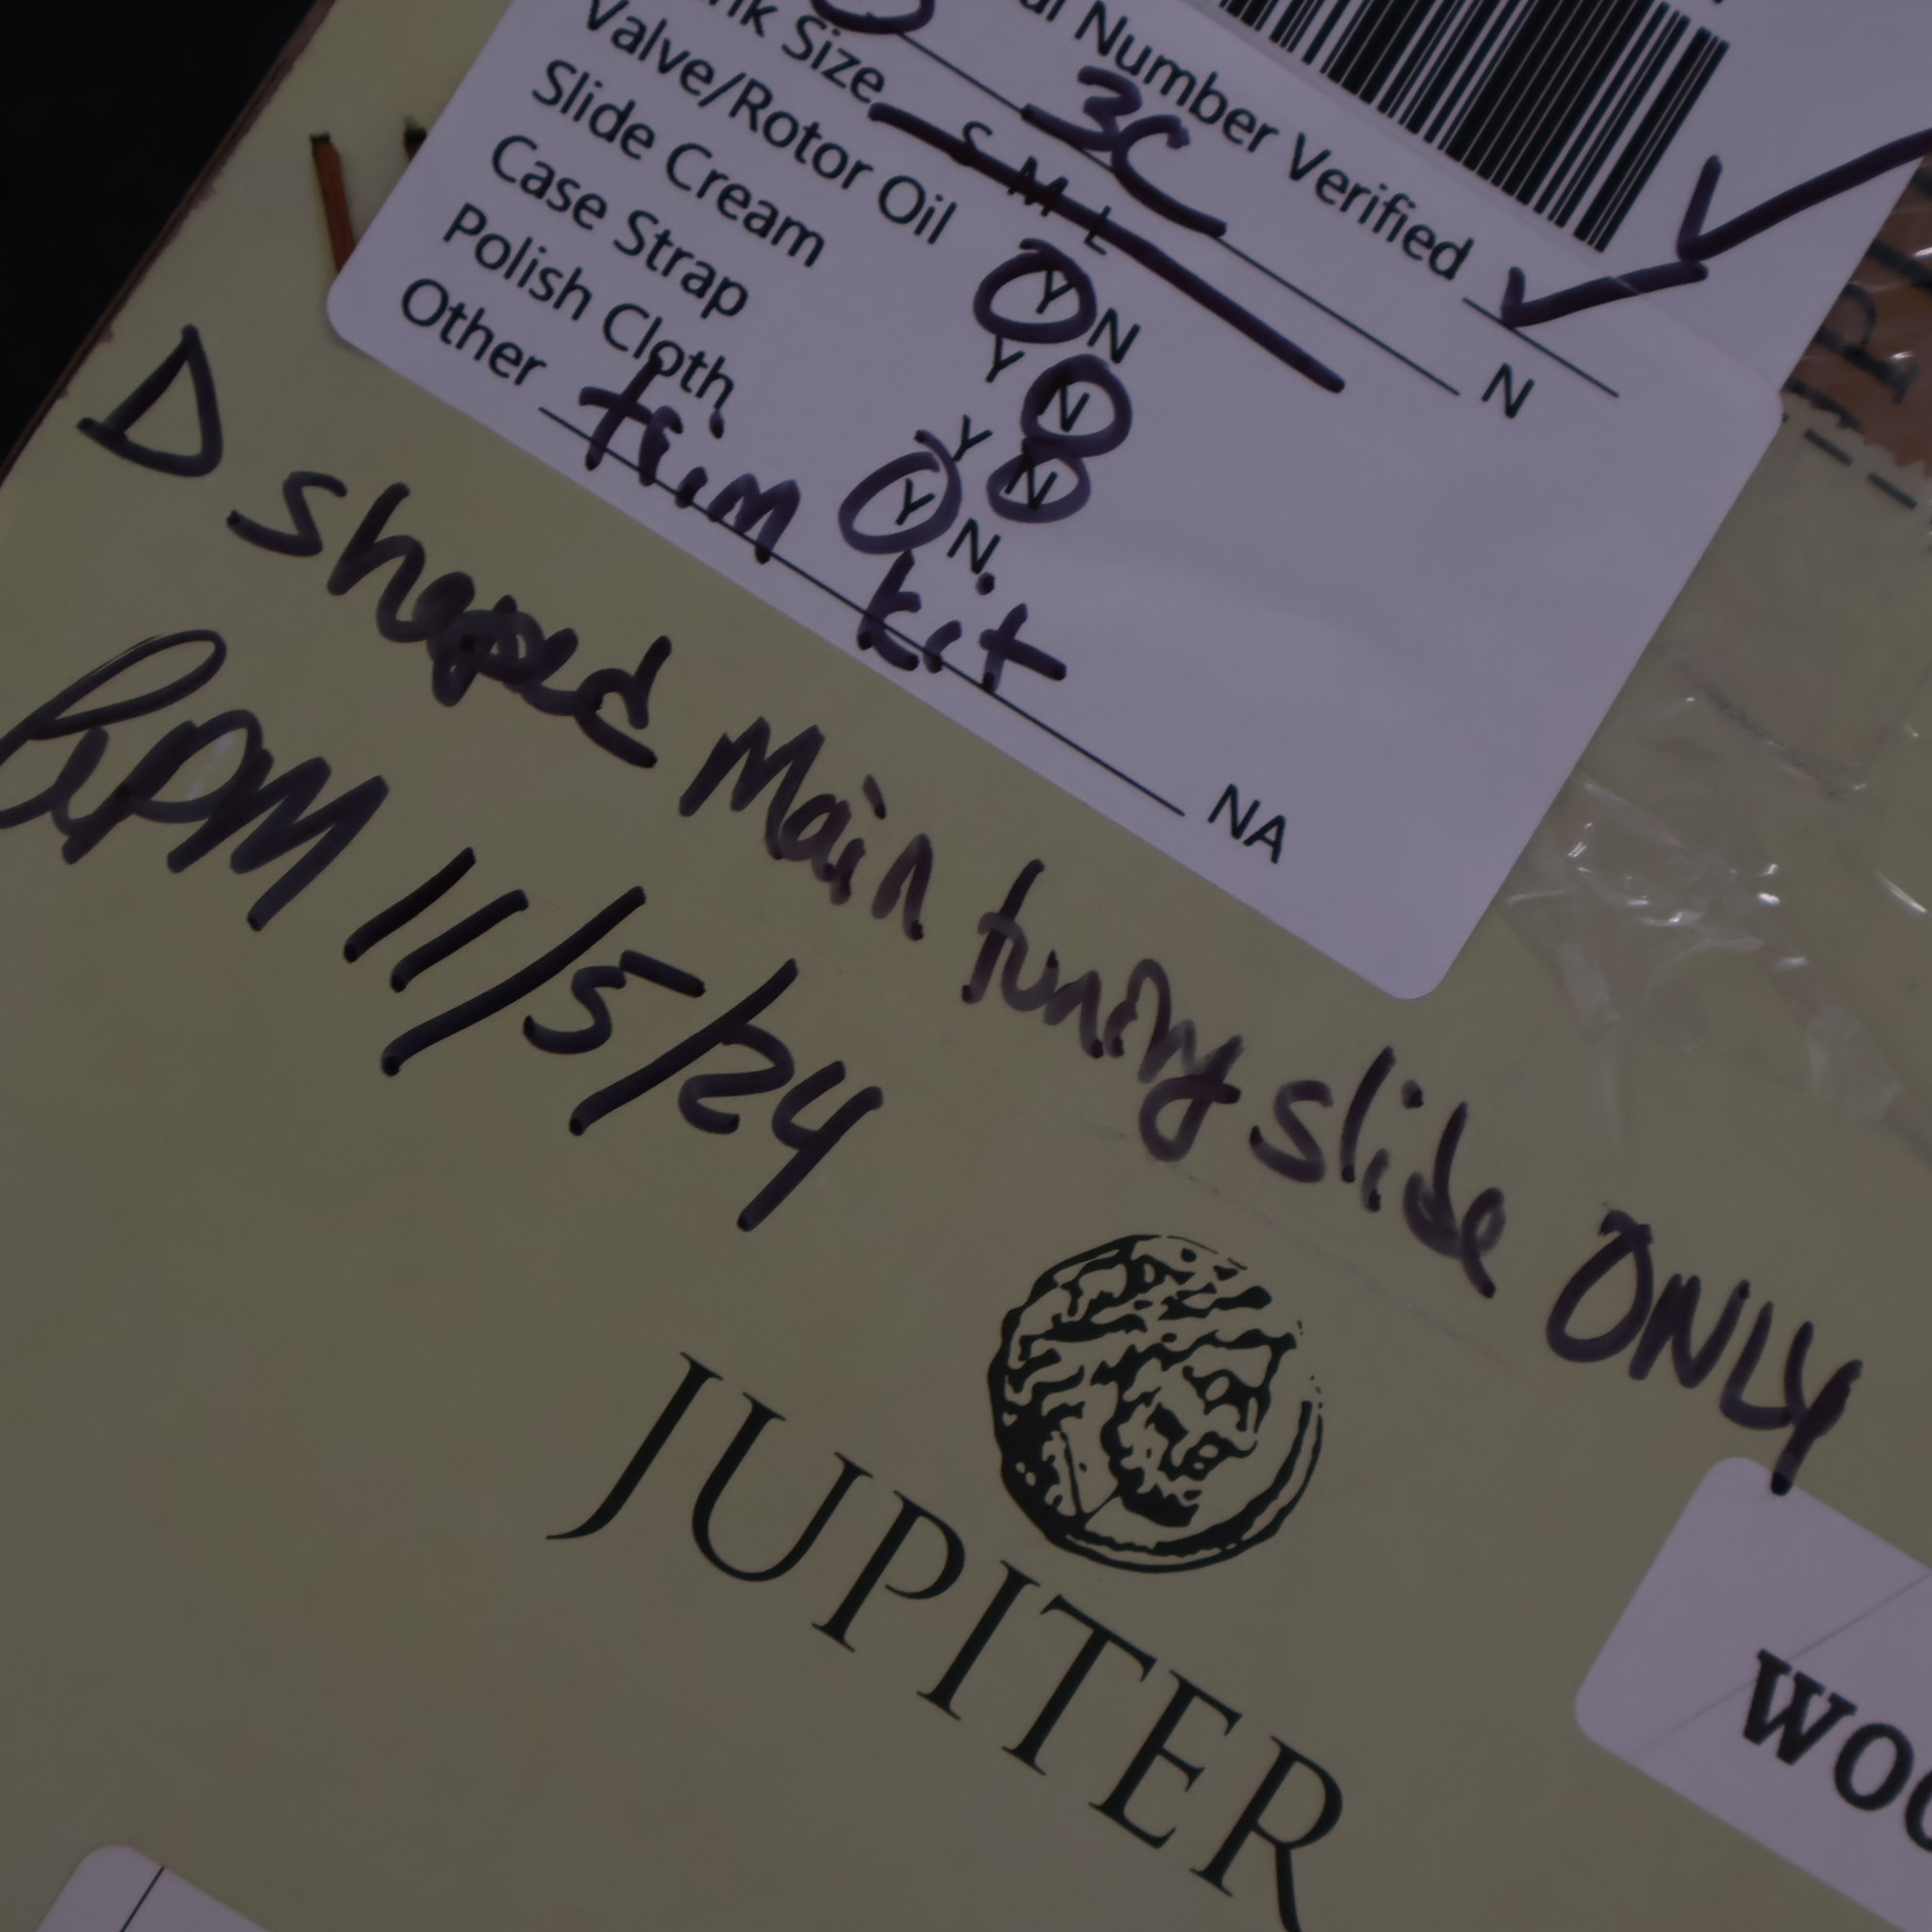 Number Verified ✓
Size 3C N
Valve/Rotor Oil S M L
Slide Cream Y N
Case Strap Y N
Polish Cloth Y N
Other trim kit Y N NA
D shaped Main tuning slide ONLY
11/5/24
JUPITER